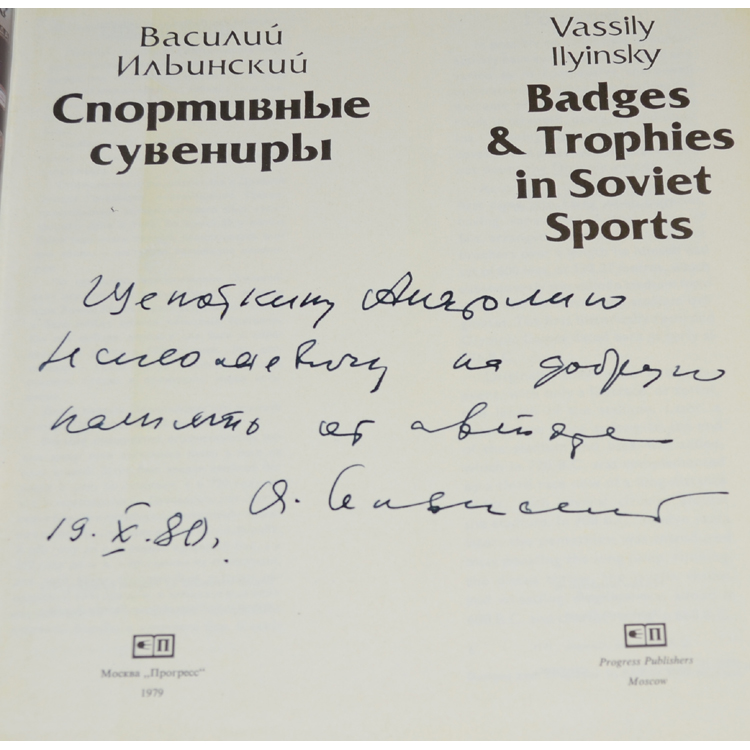 Василий
Ильинский
Спортивные
сувениры
Vassily
Ilyinsky
Badges
& Trophies
in Soviet
Sports
Щепоткину Анатолию
Николаевичу на добрую
память от автора
19.X.80.
П
Москва „Прогресс"
1979
П
Progress Publishers
Moscow